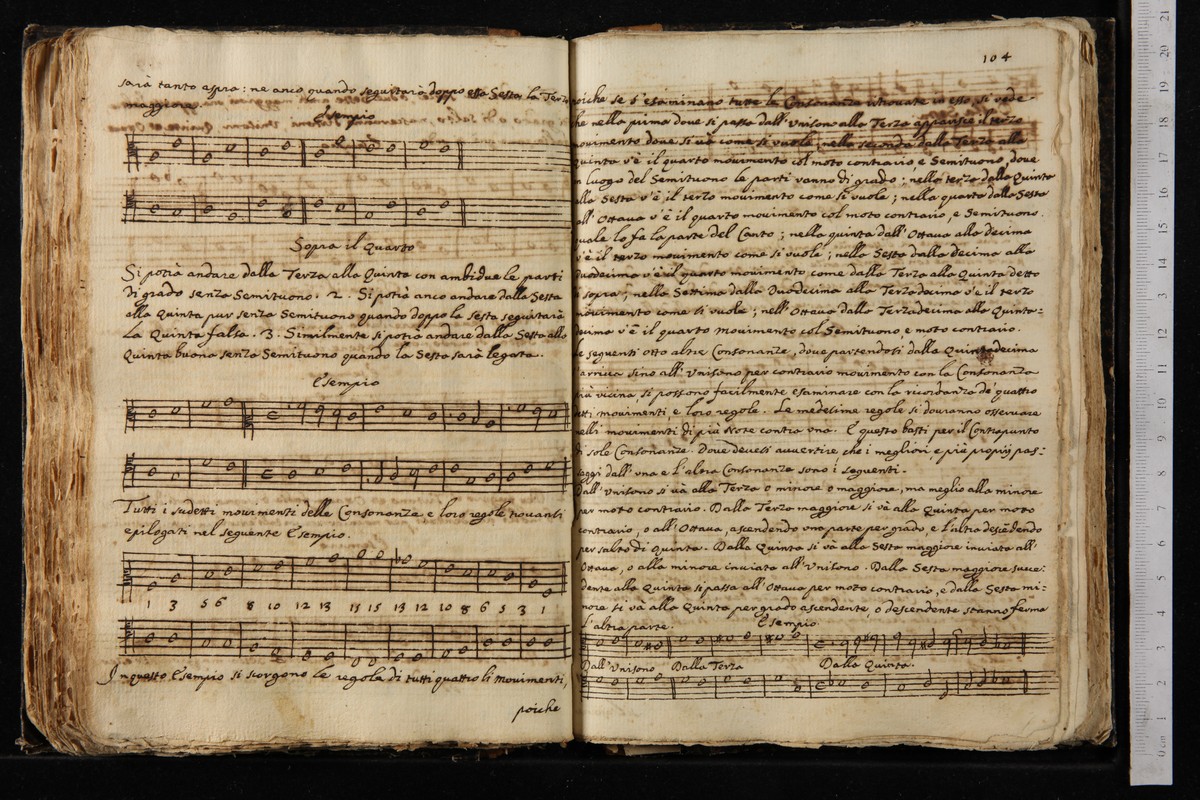 sarà tanto aspra: ne anco quando seguitarà doppo essa Sesta la Terza
maggiore.
Esempio
Sopra il Quarto
Si potrà andare dalla Terza alla Quinta con ambidue le parti
di grado senza Semituono. 2. Si potrà anco andare dalla Sesta
alla Quinta pur senza Semituono quando doppo la sesta seguitarà
La Quinta falsa. 3. Similmente si potrà andare dalla Sesta alla
Quinta buona senza Semituono quando la Sesta sarà legata.
Esempio
Tutti i sudetti movimenti delle Consonanze, e loro regole trovansi
epilogati nel seguente Esempio.
1 3 5 6 8 10 12 13 15 15 13 12 10 8 6 5 3 1
In questo Esempio si scorgono le regole di tutti quattro li movimenti,
poiche
104
poiche se s'esaminano tutte le Consonanze ritrovate in esso, si vede-
che nella prima dove si passa dall'Unisono alla Terza apparisce il terzo
movimento dove si và come si vuole; nella seconda dalla Terza alla
quinta v'è il quarto movimento col moto contrario e Semituono, dove
in luogo del Semituono le parti vanno di grado; nella terza dalla Quinta
alla Sesta v'è il terzo movimento come si vuole; nella quarta dalla Sesta
all'Ottava v'è il quarto movimento col moto contrario, e Semituono.
quale lo fa la parte del Canto; nella quinta dall'Ottava alla decima
v'è il terzo movimento come si vuole; nella Sesta dalla decima alla
Duodecima v'è il quarto movimento come dalla Terza alla Quinta detto
di sopra; nella Settima dalla Duodecima alla Terzadecima v'è il terzo
movimento come si vuole; nell'Ottava dalla Terzadecima alla Quinta-
decima v'è il quarto movimento col Semituono, e moto contrario.
Le seguenti otto altre Consonanze, dove partendosi dalla Quintadecima
arriva sino all'Unisono per contrario movimento con la Consonanza
più vicina, si possono facilmente esaminare con la ricordanza de quattro
detti movimenti e loro regole. Le medesime regole si douranno osservare
nelli movimenti di più Note contra una. E questo basti per il Contrapunto
di sole Consonanze. Dove devesi avvertire che i megliori, e più proprij pas-
saggi dall'una e l'altra Consonanza sono i seguenti.
Dall'Unisono si và alla Terza o minore o maggiore, ma meglio alla minore
per moto contrario. Dalla Terza maggiore si và alla Quinta per moto
contrario, o all'Ottava, ascendendo una parte per grado, e l'altra descēdendo
per salto di Quinta. Dalla Quinta si và alla Sesta maggiore inviata all'
Ottava, o alla minore inviata all'Unisono. Dalla Sesta maggiore succe-
dente alla Quinta si passa all'Ottava per moto contrario, e dalla Sesta mi-
nore si và alla Quinta per grado ascendente o descendente stanno ferma
l'altra parte.
Esempio
Dall'Unisono Dalla Terza Dalla Quinta.